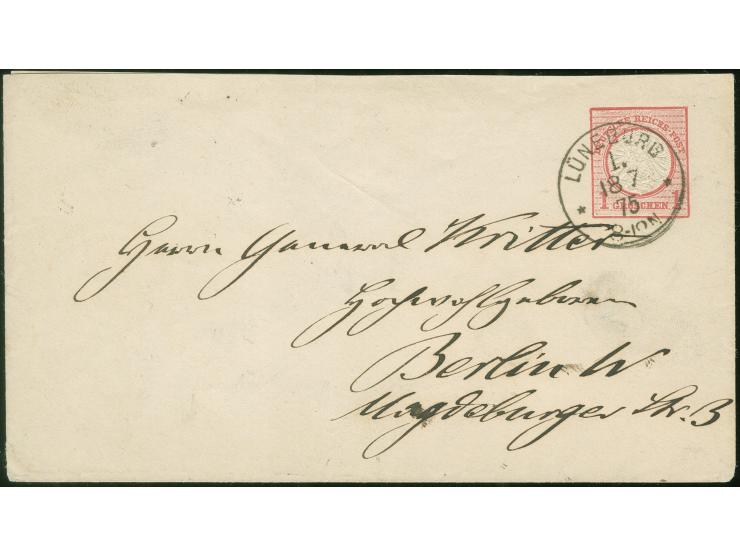 DEUTSCHE REICHS-POST
1 GROSCHEN 1
LÜNEBURG
L.
18 7
75
8-10N
Herrn General Kritter
Hochwohlgeboren
Berlin W
Magdeburger Str. 3